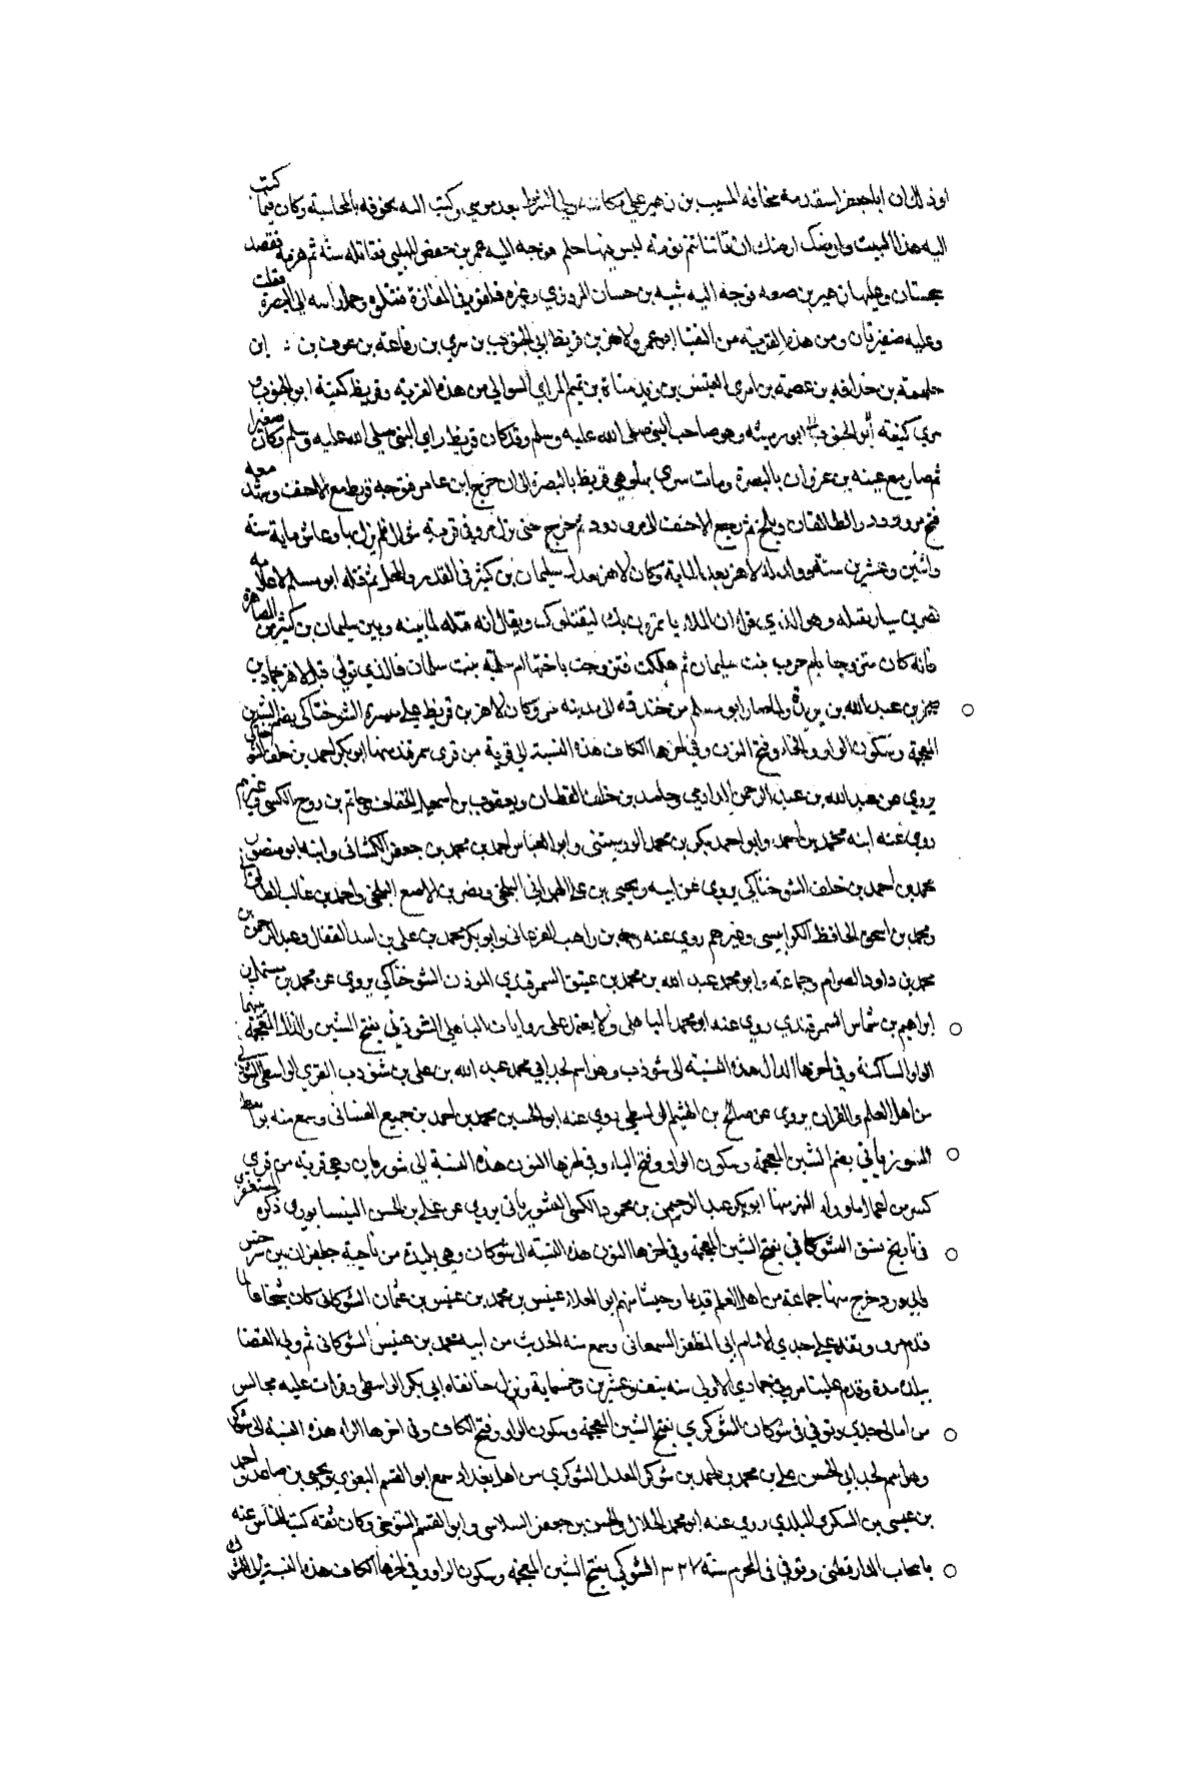 ان ابا جعفر استقدمه مخافه المسيب بن زهير على مكانته وولي الشرط بعد موسى وكتب اليه يخوفه بالمحاسبة وكان فيما كتب
اليه هذا البيت فارضك ارضك ان تاتنا تنم نومة ليس فيها حلم فوجه اليه عمر بن حفص المهلبي فقاتله سنة ثم هزمه فقصد
سجستان وعليها زهير بن فوجه اليه شبيه بن حسان المروزي وغيره فلقوه في المفازة فقتلوه وحملوا راسه الى البصرة
وعليه ضفيرتان ومن هذه القرية من النقباء ابو عمرو لاهز بن قريظ ابي الجنوب بن سري بن رفاعة بن عوف بن ابن
بن حذافه بن عصمة بن امرئ القيس بن زيد مناة بن تميم المرائي السوالي من هذه القرية وقريظ كنيته ابو الجنوب و
سري كنيته ابو رمثه وهو صاحب النبي صلى الله عليه وسلم وقد كان قريظ راى النبي صلى الله عليه وسلم وكان صغيرا
ثم صار مع عتبه بن غزوان بالبصرة ومات سري بها وبقي قريظ بالبصرة الى ان خرج ابن عامر فتوجه قريظ مع الاحنف وشهد معه
فتح مروروذ والطالقان وبلخ ثم رجع الاحنف الى مرو ثم خرج حتى نزل مرو في قرية شوال فلم يزل بها وعاش ماية سنة
واثنين وعشرين سنة وولد له لاهز بعد الماية وكان لاهز بعدل سليمان بن كثير في القدر والمحل ثم قتله ابو مسلم لاعلامه
نصر بن سيار بقتله وهو الذي قرا ان الملا ياتمرون بك ليقتلوك ويقال انه قتله لما بينه وبين سليمان بن كثير من المصاهرة
فانه كان متزوجا بام بنت سليمان ثم هلكت فتزوجت باختها ام سلمة بنت سلمان فالذي تولى قتل لاهز حماد بن
صخر بن عبد الله بن بريدة ولما صار ابو مسلم من خندقه الى مدينة مرو كان لاهز بن قريظ على ميسرة الشوخناكي بضم الشين
المعجمة وسكون الواو والخاء وفتح النون وفي اخرها الكاف هذه النسبة الى قرية من قرى سمرقند منها ابو بكر احمد بن خلف الشوخناكي
يروي عن عبد الله بن عبد الرحمن الدارمي وحامد بن خلف القطان ويعقوب بن اسمعيل الخفاف وحاتم بن روح الكسي وغيرهم
روى عنه ابنه محمد بن احمد وابو احمد بكر بن محمد الورسنيني وابو العباس احمد بن محمد بن جعفر الكشاني وابنه ابو منصور
محمد بن احمد بن خلف الشوخناكي يروي عن ابيه ويحيى بن علي البلخي ونصر بن الاصبع البلخي واحمد بن غالب الطالقاني
ومحمد بن اسحق الحافظ الكرابيسي وغيرهم روى عنه بن راهب الفرغاني وابو بكر محمد بن علي بن اسد القفال وعبد الرحمن بن
محمد بن داود الصرام وجماعة وابو محمد عبد الله بن محمد بن عتيق السمرقندي المؤذن الشوخناكي يروي عن محمد بن
ابراهيم بن شماس السمرقندي روى عنه ابو محمد الباهلي ولا يعتمد على روايات الباهلي الشوذبي بفتح الشين والذال المعجمة بينهما
الواو الساكنة وفي اخرها الدال هذه النسبة الى شوذب وهو اسم لجد ابي محمد عبد الله بن علي بن شوذب المقري الواسطي الشوذبي
من اهل العلم والقران يروي عن صالح بن الهيثم الواسطي روى عنه ابو الحسين محمد بن احمد بن جميع الغساني وسمع منه بواسط
الشورباني بضم الشين المعجمة وسكون الواو وفتح الباء وفي اخرها النون هذه النسبة الى شوربان وهي قرية من قرى
كس من اعمال ما وراء النهر منها ابو بكر عبد الرحيم بن محمود الكسي الشورباني يروي عن علي بن الحسن النيسابوري ذكره المستغفري
في تاريخ نسف الشوكاني بفتح الشين المعجمة وفي اخرها النون هذه النسبة الى شوكان وهي بليدة من ناحية خابران بين سرخس
وابيورد خرج منها جماعة من اهل العلم قديما وحديثا منهم ابو العلاء عنيس بن محمد بن عنيس بن عثمان الشوكاني كان شيخا عالما
قدم مرو وتفقه على جدي الامام ابي المظفر السمعاني وسمع منه الحديث من ابيه محمد بن عنيس الشوكاني ثم ولي القضا
ببلده مدة وقدم علينا مرو في جمادى الاولى سنة نيف وعشرين وخمسماية ونزل خانقاه ابي بكر الواسطي وقرات عليه مجالس
من امالي جدي وتوفي في شوكان الشوكري بفتح الشين المعجمة وسكون الواو وفتح الكاف وفي اخرها الراء هذه النسبة الى شوكر
وهو اسم لجد ابي الحسن علي بن محمد بن احمد بن شوكر المعدل الشوكري من اهل بغداد سمع ابو القسم البغوي ويحيى بن صاعد واحمد
بن عيسى بن السكري البلدي روى عنه ابو محمد الخلال والحسن بن جعفر السلامي وابو القسم التنوخي وكان ثقة كتب الناس عنه
بانتخاب الدارقطني وتوفي في المحرم سنة ٣٢٧ الشوكي بفتح الشين المعجمة وسكون الواو وفي اخرها الكاف هذه النسبة الى الشوك